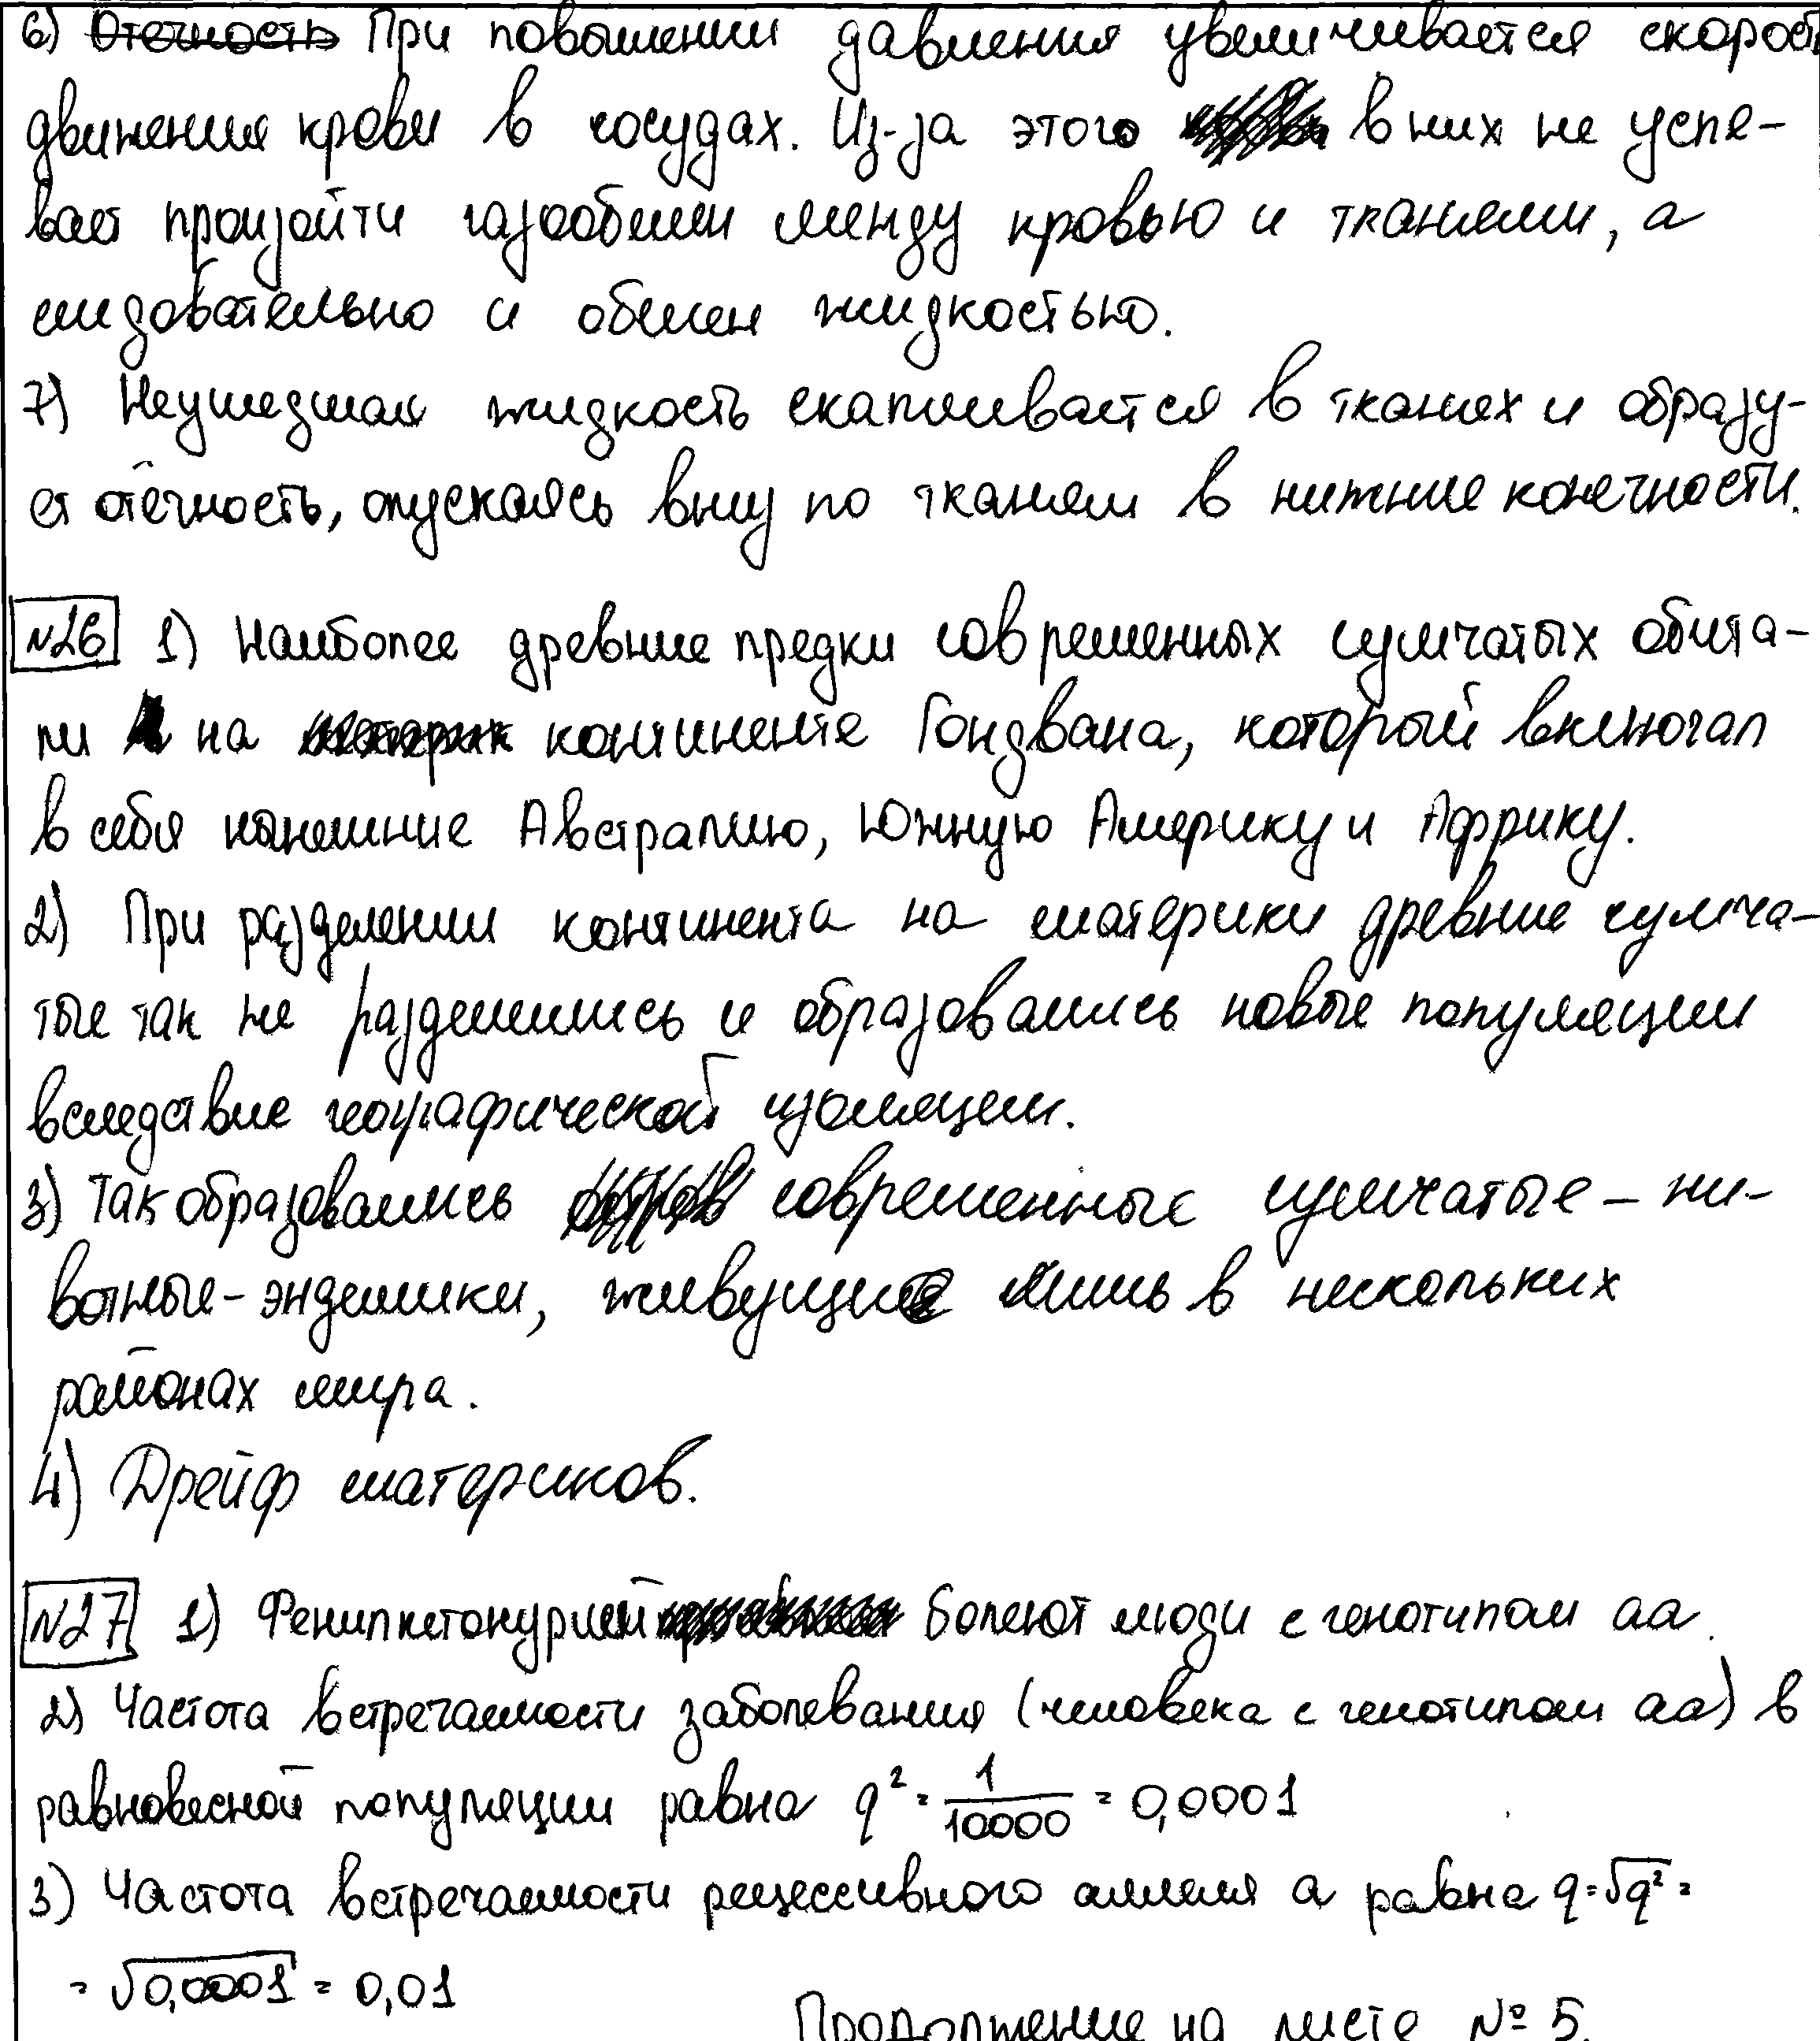 6) Отечность При повышении давления увеличивается скорост
движения крови в сосудах. Из-за этого в них не успе-
вает произойти газообмен между кровью и тканями, а
следовательно и обмен жидкостью.
7) Неушедшая жидкость скапливается в тканях и образу-
ет отёчность, опускаясь вниз по тканям в нижние конечности.
№26 1) Наиболее древние предки современных сумчатых обита-
ли на континенте Гондвана, который включал
в себя нынешние Австралию, Южную Америку и Африку.
2) При разделении континента на материки древние сумча-
тые так же разделились и образовались новые популяции
вследствие географической изоляции.
3) Так образовались современные сумчатые – жи-
вотные-эндемики, живущие лишь в нескольких
районах мира.
4) Дрейф материков.
№27 1) Фенилкетонурией болеют люди с генотипом аа.
2) Частота встречаемости заболевания (человека с генотипом аа) в
равновесной популяции равна q² = 1/10000 = 0,0001
3) Частота встречаемости рецессивного аллеля а равна q = √q² =
= √0,0001 = 0,01
Продолжение на листе № 5.